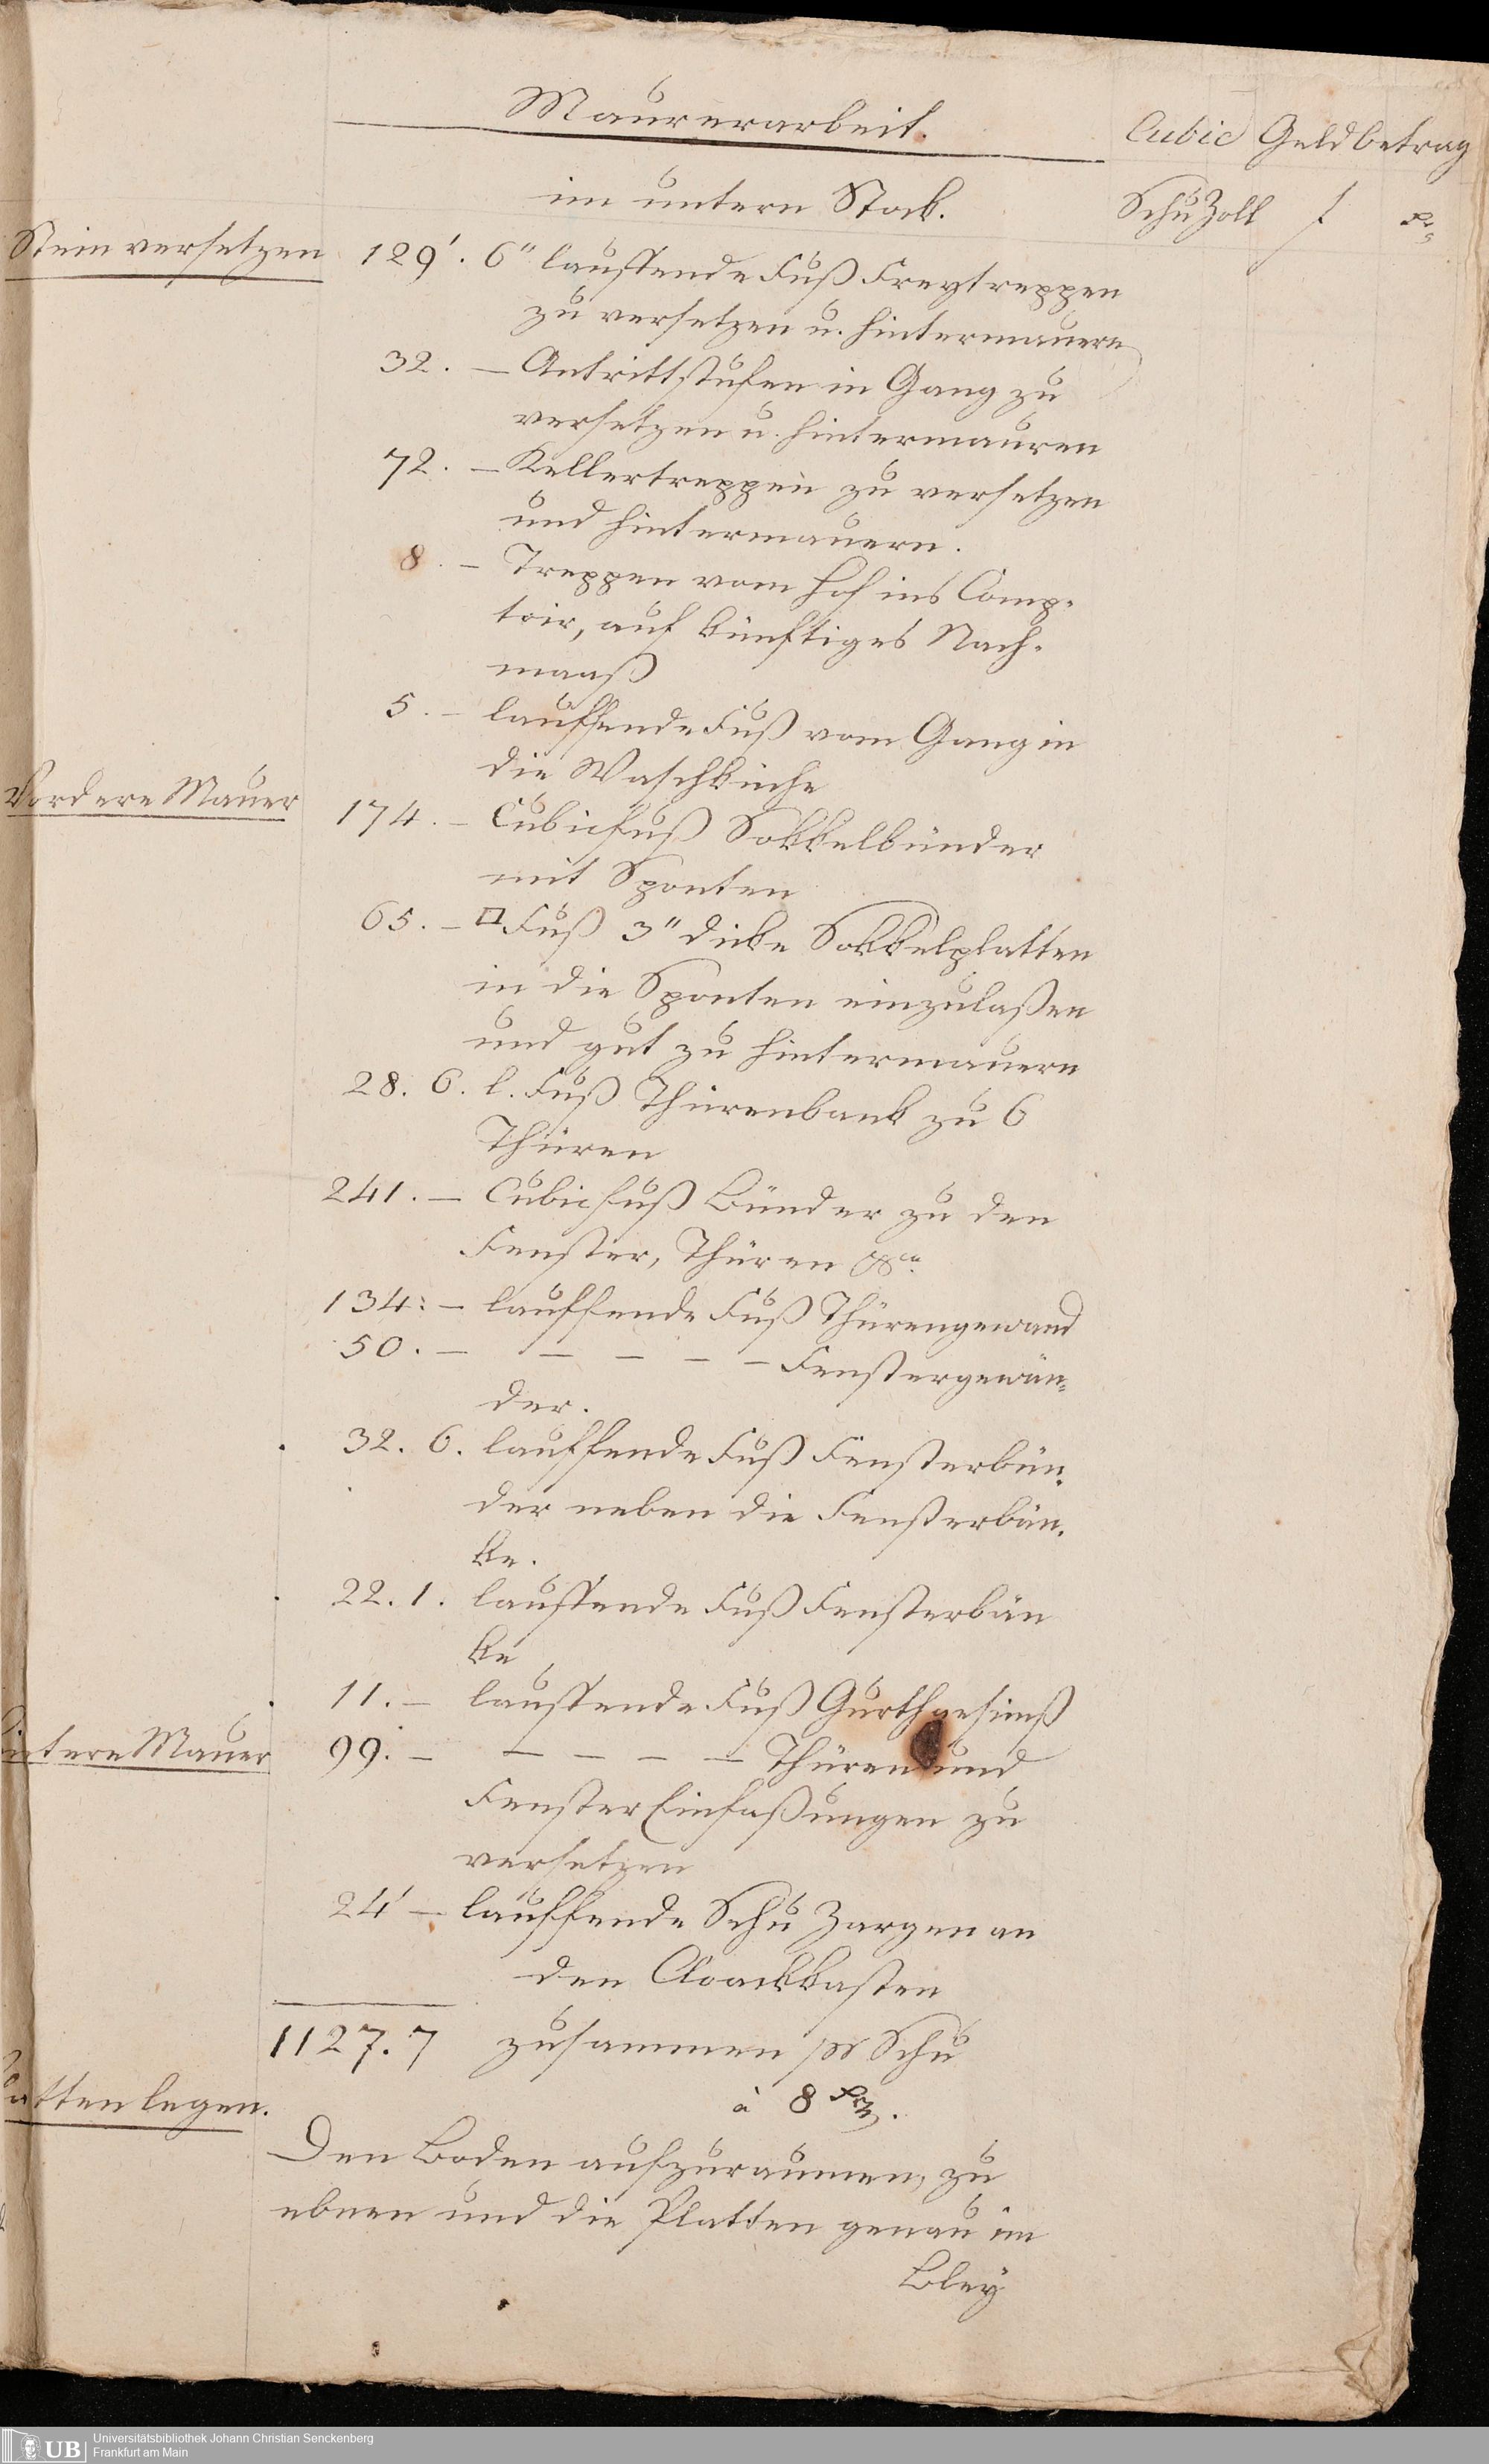 Maurerarbeit.
Cubic Geldbetrag
im untern Stock.
Schu Zoll f
Stein versetzen
129'. 6" lauffende Fuß Freytreppen
zu versetzen u. hintermauern
32. — Antrittstufen in Gang zu
versetzen u. hintermauren
72. — Kellertreppen zu versetzen
und hintermauern.
8. — Treppen vom Hof ins Comp-
toir, auf künftiges Nach-
maaß
5. — lauffende Fuß vom Gang in
die Waschküche
Vordere Mauer
174. — Cubicfuß Sokkelbünder
mit Sponten
65. — □ Fuß 3" dicke Sokkelplatten
in die Sponten einzulaßen
und gut zu hintermauern
28. 6. l. Fuß Thürenbank zu 6
Thüren
241. — Cubicfuß Bünder zu den
Fenster, Thüren
134: — lauffende Fuß Thürengewand
50. — — — — — Fenstergewän-
der.
32. 6. lauffende Fuß Fensterbün-
der neben die Fensterbän-
ke.
22. 1. lauffende Fuß Fensterbän
ke
11. — lauffende Fuß Gurthgesimß
Hintere Mauer
99. — — — — — Thüren und
Fenster Einfaßungen zu
versetzen
24' — lauffende Schu Zargen an
den Cloackkasten
1127. 7 zusammen pr Schu
à 8 Krz.
Platten legen.
Den Boden aufzuraumen, zu
ebnen und die Platten genau im
Bley
UB
Universitätsbibliothek Johann Christian Senckenberg
Frankfurt am Main